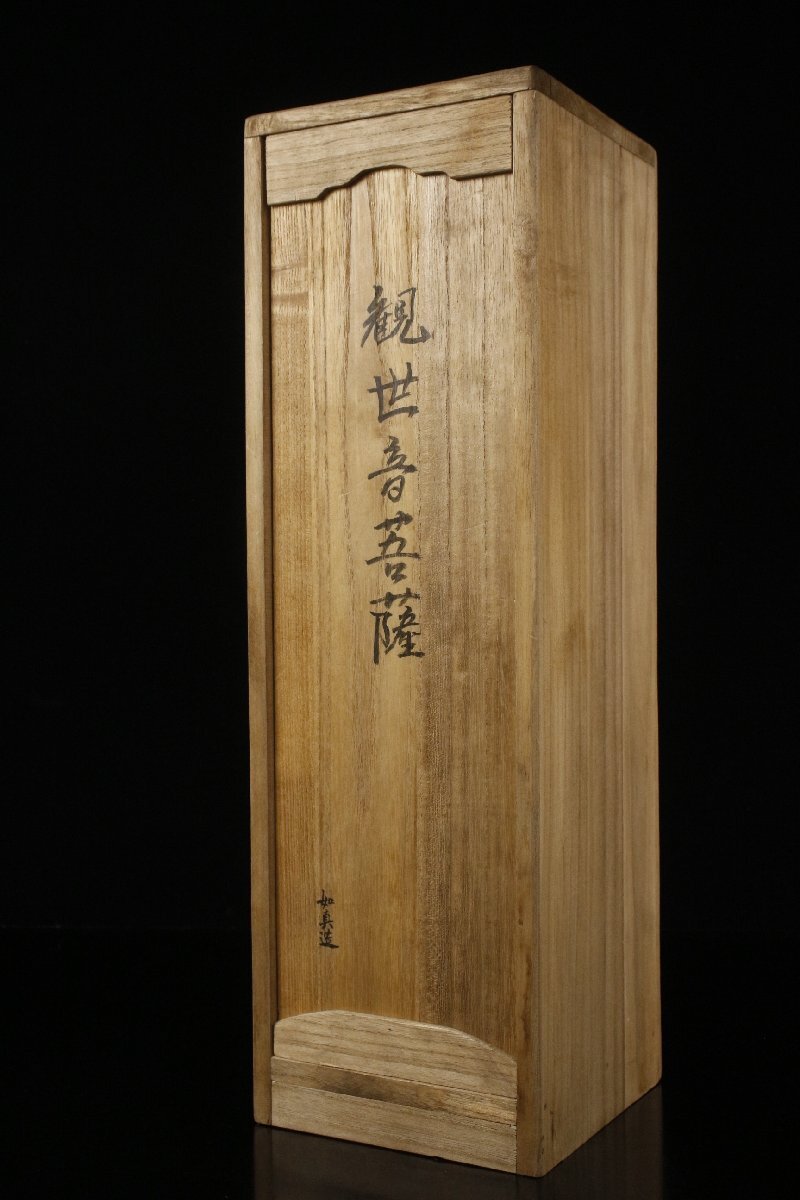 観世音菩薩
如真造